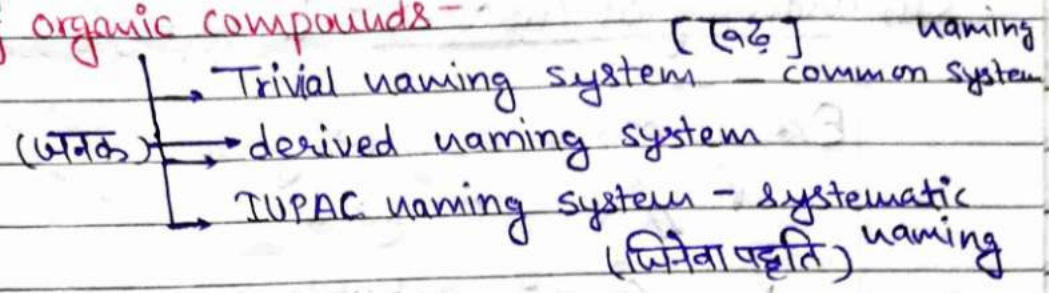 organic compounds-
[रूढ़] naming
Trivial naming system - common system
(जनक) derived naming system
IUPAC naming system - systematic
(जिनेवा पद्धति) naming